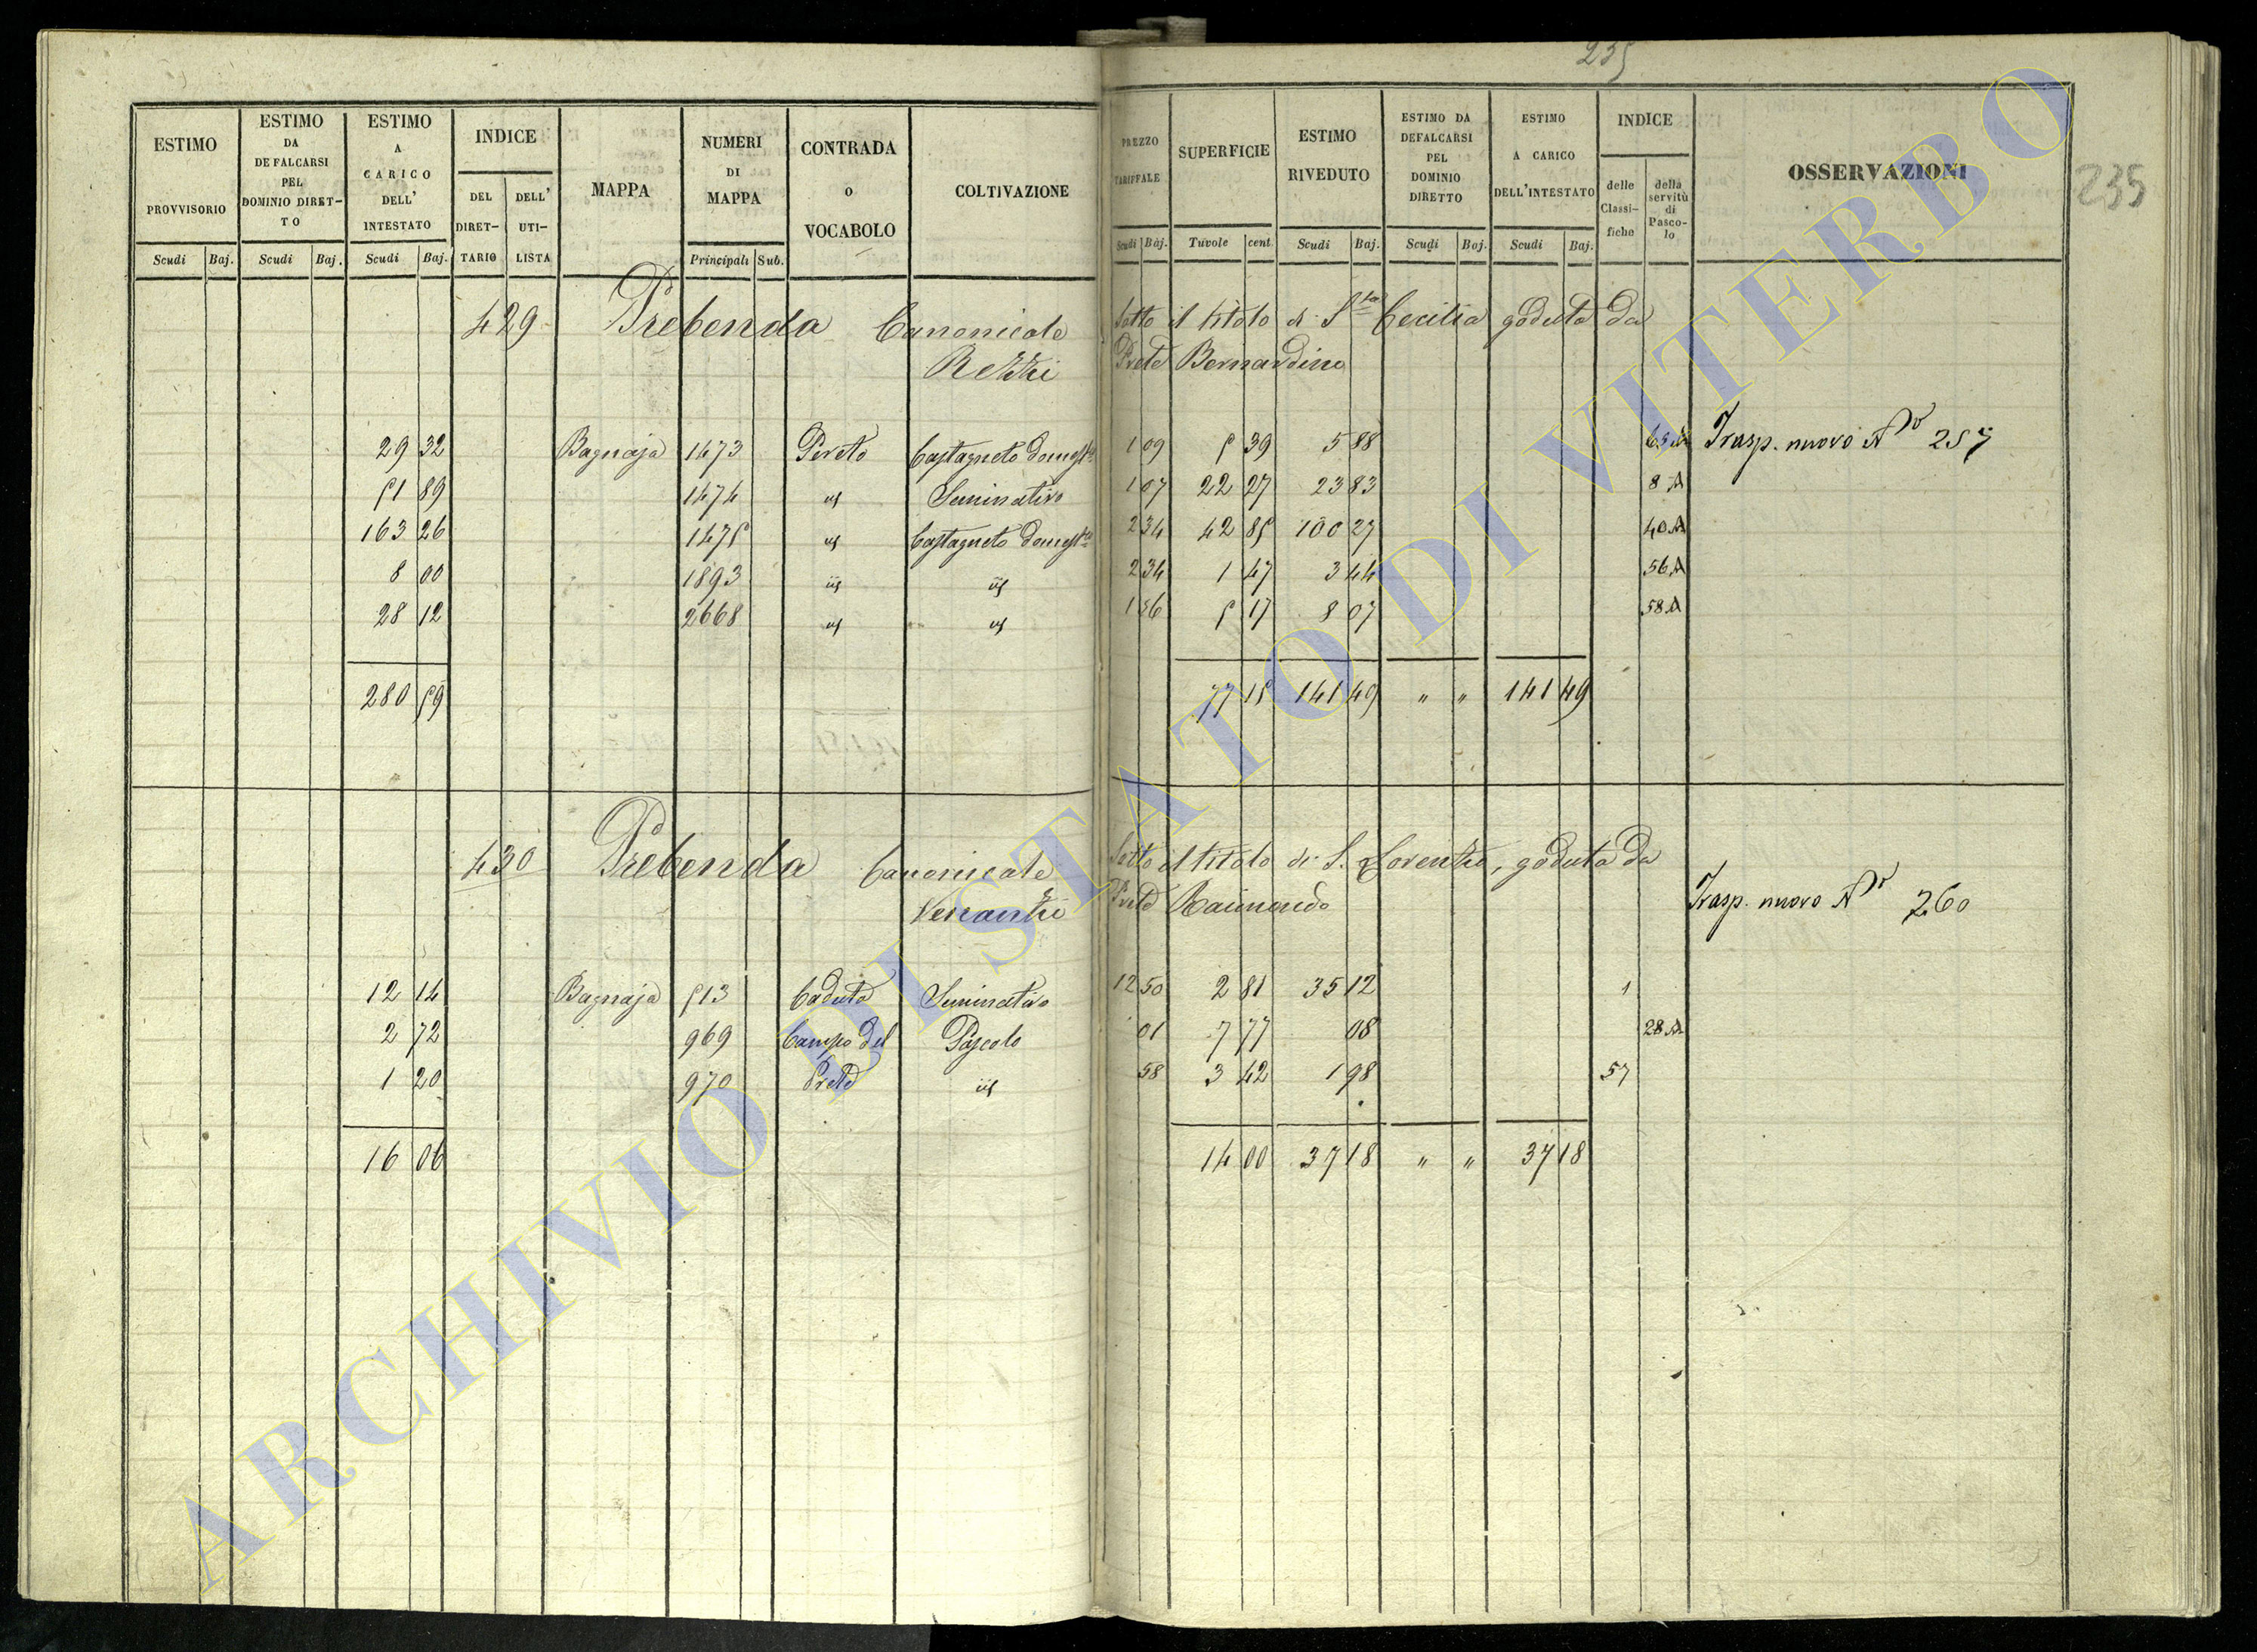 235
235
ESTIMO PROVVISORIO
ESTIMO DA DEFALCARSI PEL DOMINIO DIRET-TO
ESTIMO A CARICO DELL' INTESTATO
INDICE
DEL DIRET-TARIO
DELL' UTI-LISTA
MAPPA
NUMERI DI MAPPA
CONTRADA o VOCABOLO
COLTIVAZIONE
PREZZO TARIFFALE
SUPERFICIE
ESTIMO RIVEDUTO
ESTIMO DA DEFALCARSI PEL DOMINIO DIRETTO
ESTIMO A CARICO DELL'INTESTATO
INDICE
delle Classi-fiche
della servitù di Pasco-lo
OSSERVAZIONI
Scudi Baj. Scudi Baj. Scudi Baj. Principali Sub. Scudi Baj. Tavole cent. Scudi Baj. Scudi Baj. Scudi Baj.
429 Prebenda Canonicale Sotto il titolo di S.ta Cecilia goduta da
Rezzi Prete Bernardino
29 32 Bagnaja 1473 Pereto Castagneto domest.co 1 09 5 39 5 88 65 A Trasp. nuovo N.o 257
51 89 1474 id Seminativo 1 07 22 27 23 83 8 A
163 26 1475 id Castagneto domest.co 2 34 42 85 100 27 40 A
8 00 1893 id id 2 34 1 47 3 44 56 A
28 12 2668 id id 1 56 5 17 8 07 58 A
280 59 77 15 141 49 " " 141 49
430 Prebenda Canonicale Sotto il titolo di S. Lorenzo, goduta da
Venanzi Prete Raimondo
Trasp. nuovo N.o 260
12 14 Bagnaja 513 Caduta Seminativo 12 50 2 81 35 12 1
2 72 969 Campo del Pascolo 01 7 77 08 28 A
1 20 970 Prete id 58 3 42 1 98 57
16 06 14 00 37 18 " " 37 18
ARCHIVIO DI STATO DI VITERBO